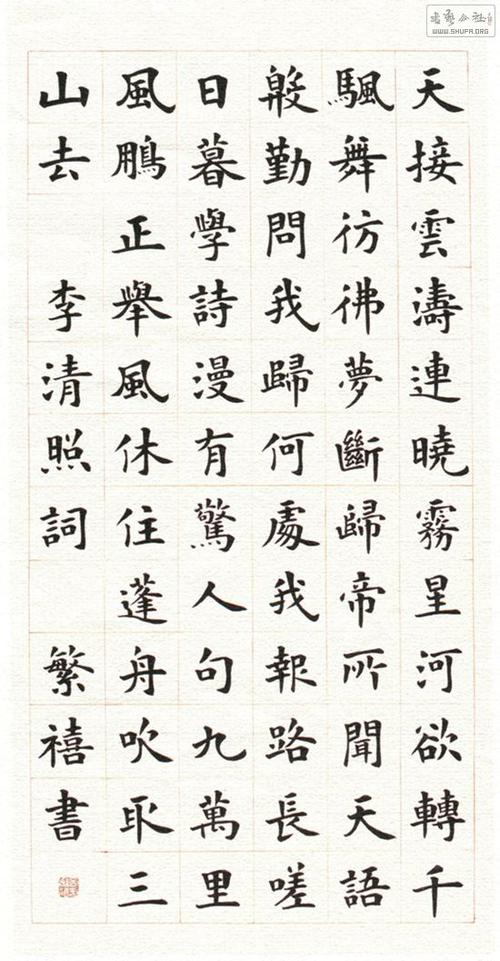 天接雲濤連曉霧星河欲轉千
颿舞彷彿夢斷歸帝所聞天語
殷勤問我歸何處我報路長嗟
日暮學詩漫有驚人句九萬里
風鵬正舉風休住蓬舟吹取三
山去 李清照詞 繁禧書
WWW.SHUFA.ORG